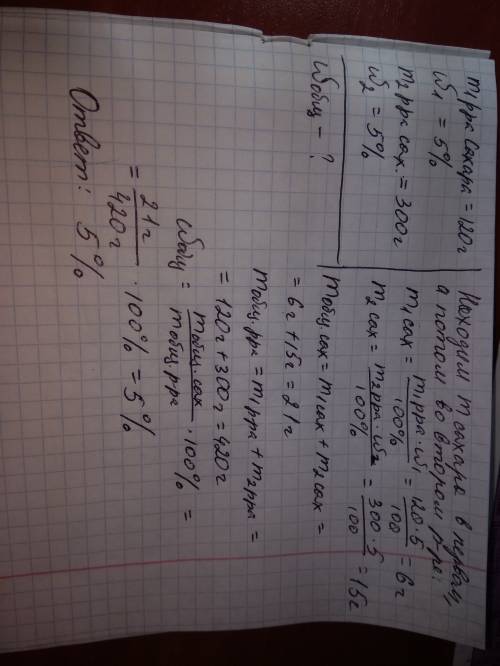 m₁ р-ра сахара = 120г
ω₁ = 5%
m₂ р-ра сах. = 300г
ω₂ = 5%
ωобщ – ?
Находим m сахара в первом,
а потом во втором р-ре:
m₁ сах = m₁ р-ра · ω₁ / 100% = 120 · 5 / 100 = 6г
m₂ сах = m₂ р-ра · ω₂ / 100% = 300 · 5 / 100 = 15г
mобщ.сах = m₁ сах + m₂ сах =
= 6г + 15г = 21г
mобщ.р-ра = m₁ р-ра + m₂ р-ра =
= 120г + 300г = 420г
ωобщ = mобщ.сах / mобщ.р-ра · 100% =
= 21г / 420г · 100% = 5%
Ответ: 5%